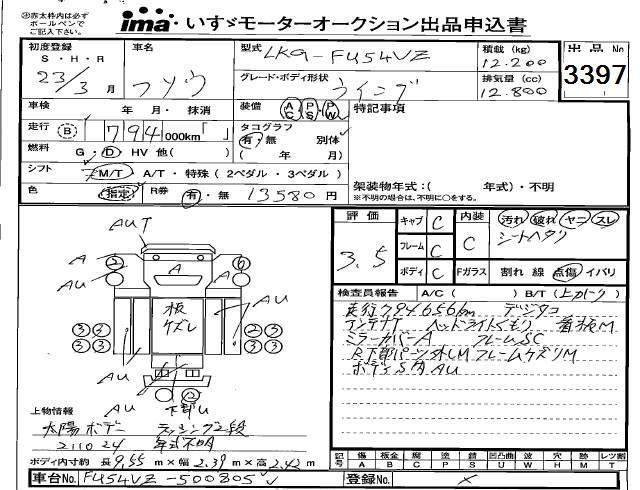 ㊟赤太枠内は必ずボールペンでご記入下さい。
ima いすゞモーターオークション出品申込書
初度登録 S・H・R 23/3月
車名 フソウ
型式 LKG-FU54VZ
積載 (kg) 12.200
出品No 3397
グレード・ボディ形状 ウイング
排気量 (cc) 12.800
車検 年 月・抹消
装備 AC PS PW
特記事項
走行 B 794 000km「 」
タコグラフ 有・無 別体 ( 年 月)
燃料 G・D・HV 他( )
シフト M/T・A/T・特殊(2ペダル・3ペダル)
架装物年式:( 年式)・不明
※不明の場合は、不明に○をする。
色 指定 R券 有・無 13580円
評価 3.5
キャブ C
フレーム C
ボディ C
内装 C
汚れ 破れ ヤニ スレ
シートヘタリ
Fガラス 割れ 線 点傷 イバリ
検査員報告 A/C ( ) B/T (上カーク)
走行794656km デジタコ
アンテナT ヘッドライトくもり 看板M
ミラーカバーA フレームSC
R下部パーン外しM フレームケズリM
ボディSA AU
AUT
A
A
板ケズレ
AU
A
AU
AU
AU
下部U
上物情報
太陽ボデー ラッシング2段
211024 年式不明
ボディ内寸約 長9.55m×幅2.39m×高2.42m
記号 傷A 板金B 腐C 塗P 錆S 凹凸曲U 波W 穴H 跡M レツ割T
車台No. FU54VZ-500805
登録No. ×